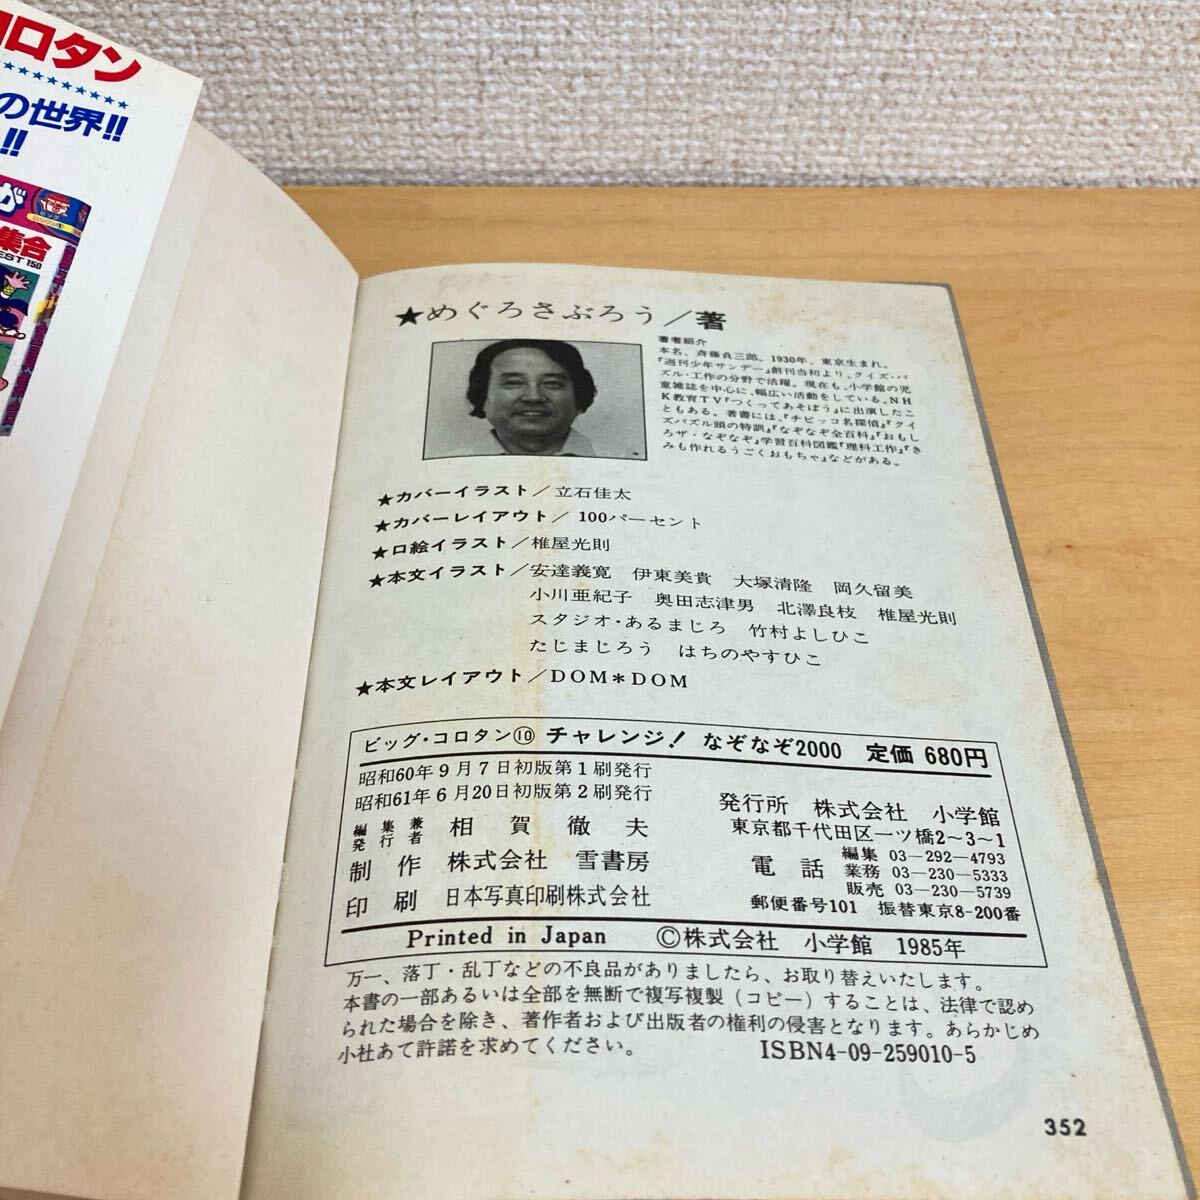 コロタン
の世界!!
!!
が
集合
EST 150
★めぐろさぶろう/著
著者紹介
本名、斉藤貞三郎。1930年、東京生まれ。
『週刊少年サンデー』創刊当初より、クイズ・パ
ズル・工作の分野で活躍。現在も、小学館の児
童雑誌を中心に、幅広い活動をしている。NH
K教育TV『つくってあそぼう』に出演したこ
ともある。著書には、『チビッコ名探偵』『クイ
ズパズル頭の特訓』『なぞなぞ全百科』『おもし
ろザ・なぞなぞ』学習百科図鑑『理科工作』『き
みも作れるうごくおもちゃ』などがある。
★カバーイラスト/立石佳太
★カバーレイアウト/100パーセント
★口絵イラスト/椎屋光則
★本文イラスト/安達義寛 伊東美貴 大塚清隆 岡久留美
小川亜紀子 奥田志津男 北澤良枝 椎屋光則
スタジオ・あるまじろ 竹村よしひこ
たじまじろう はちのやすひこ
★本文レイアウト/DOM*DOM
ビッグ・コロタン⑩ チャレンジ! なぞなぞ2000 定価 680円
昭和60年9月7日初版第1刷発行
昭和61年6月20日初版第2刷発行
編集兼
発行者 相賀徹夫
制作 株式会社 雪書房
印刷 日本写真印刷株式会社
発行所 株式会社 小学館
東京都千代田区一ツ橋2〜3〜1
電話 編集 03-292-4793
業務 03-230-5333
販売 03-230-5739
郵便番号101 振替東京8-200番
Printed in Japan ©株式会社 小学館 1985年
万一、落丁・乱丁などの不良品がありましたら、お取り替えいたします。
本書の一部あるいは全部を無断で複写複製(コピー)することは、法律で認め
られた場合を除き、著作者および出版者の権利の侵害となります。あらかじめ
小社あて許諾を求めてください。 ISBN4-09-259010-5
352